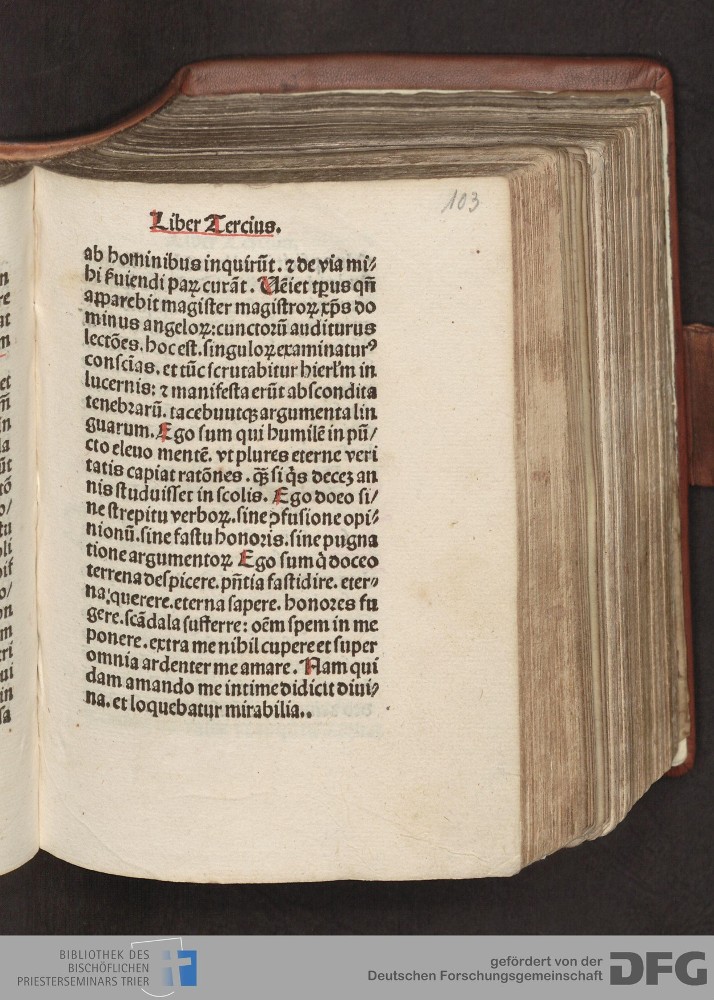 103
Liber Tercius.
ab hominibus inquirūt. ⁊ de via mi⸗
hi ẜuiendi paꝝ curāt. Uēiet tp̄us qn̄
apparebit magister magistroꝝ xp̄s do
minus angeloꝝ: cunctorū auditurus
lectōes. hoc est. singuloꝝ examinaturꝰ
consciās. et tūc scrutabitur hierl̄m in
lucernis: ⁊ manifesta erūt abscondita
tenebrarū. tacebuutqꝫ argumenta lin
guarum. Ego sum qui humilē in pū/
cto eleuo mentē. vt plures eterne veri
tatis capiat ratōnes. qꝫ̄ si q̇s decez an
nis studuisset in scolis. Ego doeo si/
ne strepitu verboꝝ. sine ꝯfusione opi⸗
nionū. sine fastu honoris. sine pugna
tione argumentoꝝ Ego sum q̇ doceo
terrena despicere. pn̄tia fastidire. eter⸗
na: querere. eterna sapere. honores fu
gere. scādala sufferre: oēm spem in me
ponere. extra me nihil cupere et super
omnia ardenter me amare. Nam qui
dam amando me intime didicit diui⸗
na. et loquebatur mirabilia..
BIBLIOTHEK DES
BISCHÖFLICHEN
PRIESTERSEMINARS TRIER
gefördert von der
Deutschen Forschungsgemeinschaft
DFG